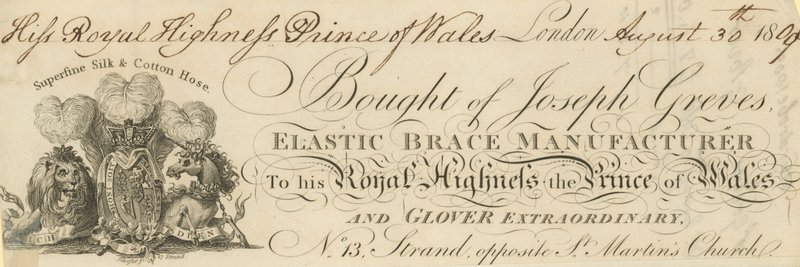 Hiſs Royal Highneſs Prince of Wales London August 30th 1809
Superfine Silk & Cotton Hose.
Bought of Joseph Greves,
ELASTIC BRACE MANUFACTURER
To his Royal Highneſs the Prince of Wales
AND GLOVER EXTRAORDINARY,
No. 13, Strand, opposite St. Martin's Church.
ICH DIEN
Strand.